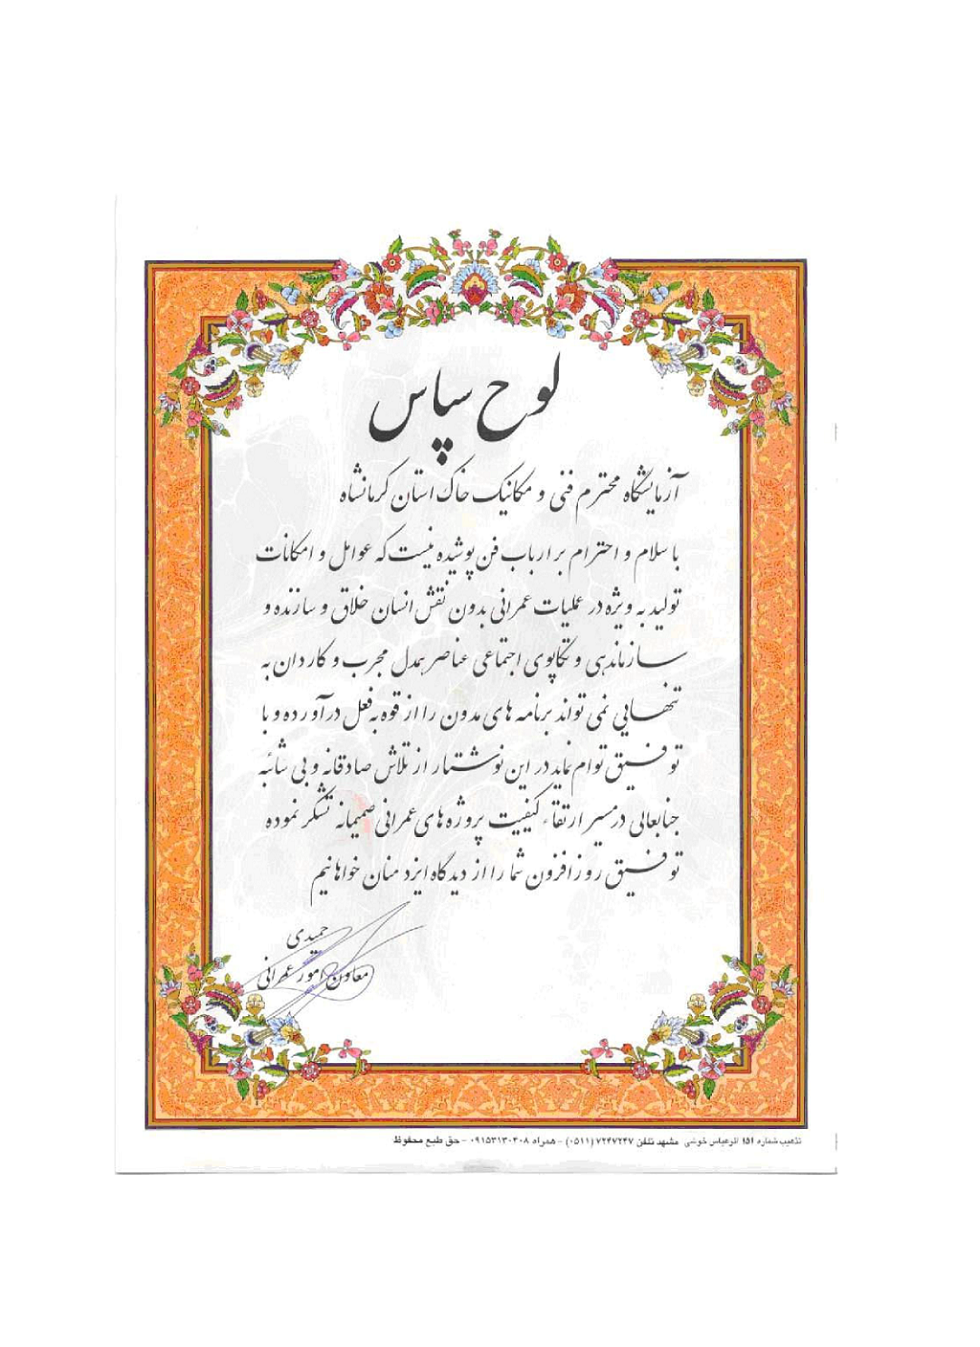 لوح سپاس
آزمایشگاه محترم فنی و مکانیک خاک استان کرمانشاه
با سلام و احترام بر ارباب فن پوشیده نیست که عوامل و امکانات
تولید به ویژه در عملیات عمرانی بدون نقش انسان خلاق و سازنده و
سازماندهی و تکاپوی اجتماعی عناصر همدل مجرب و کاردان به
تنهایی نمی تواند برنامه های مدون را از قوه به فعل در آورده و با
توفیق توام نماید در این نوشتار از تلاش صادقانه و بی شائبه
جنابعالی در مسیر ارتقاء کیفیت پروژه های عمرانی صمیمانه تشکر نموده
توفیق روز افزون شما را از دیدگاه ایزد منان خواهانیم
حمیدی
معاون امور عمرانی
تذهیب شماره ۱۵۱ اثر عباس خوشی مشهد تلفن ۷۲۴۷۲۴۷ (۰۵۱۱) - همراه ۰۹۱۵۳۱۳۰۳۰۸ - حق طبع محفوظ